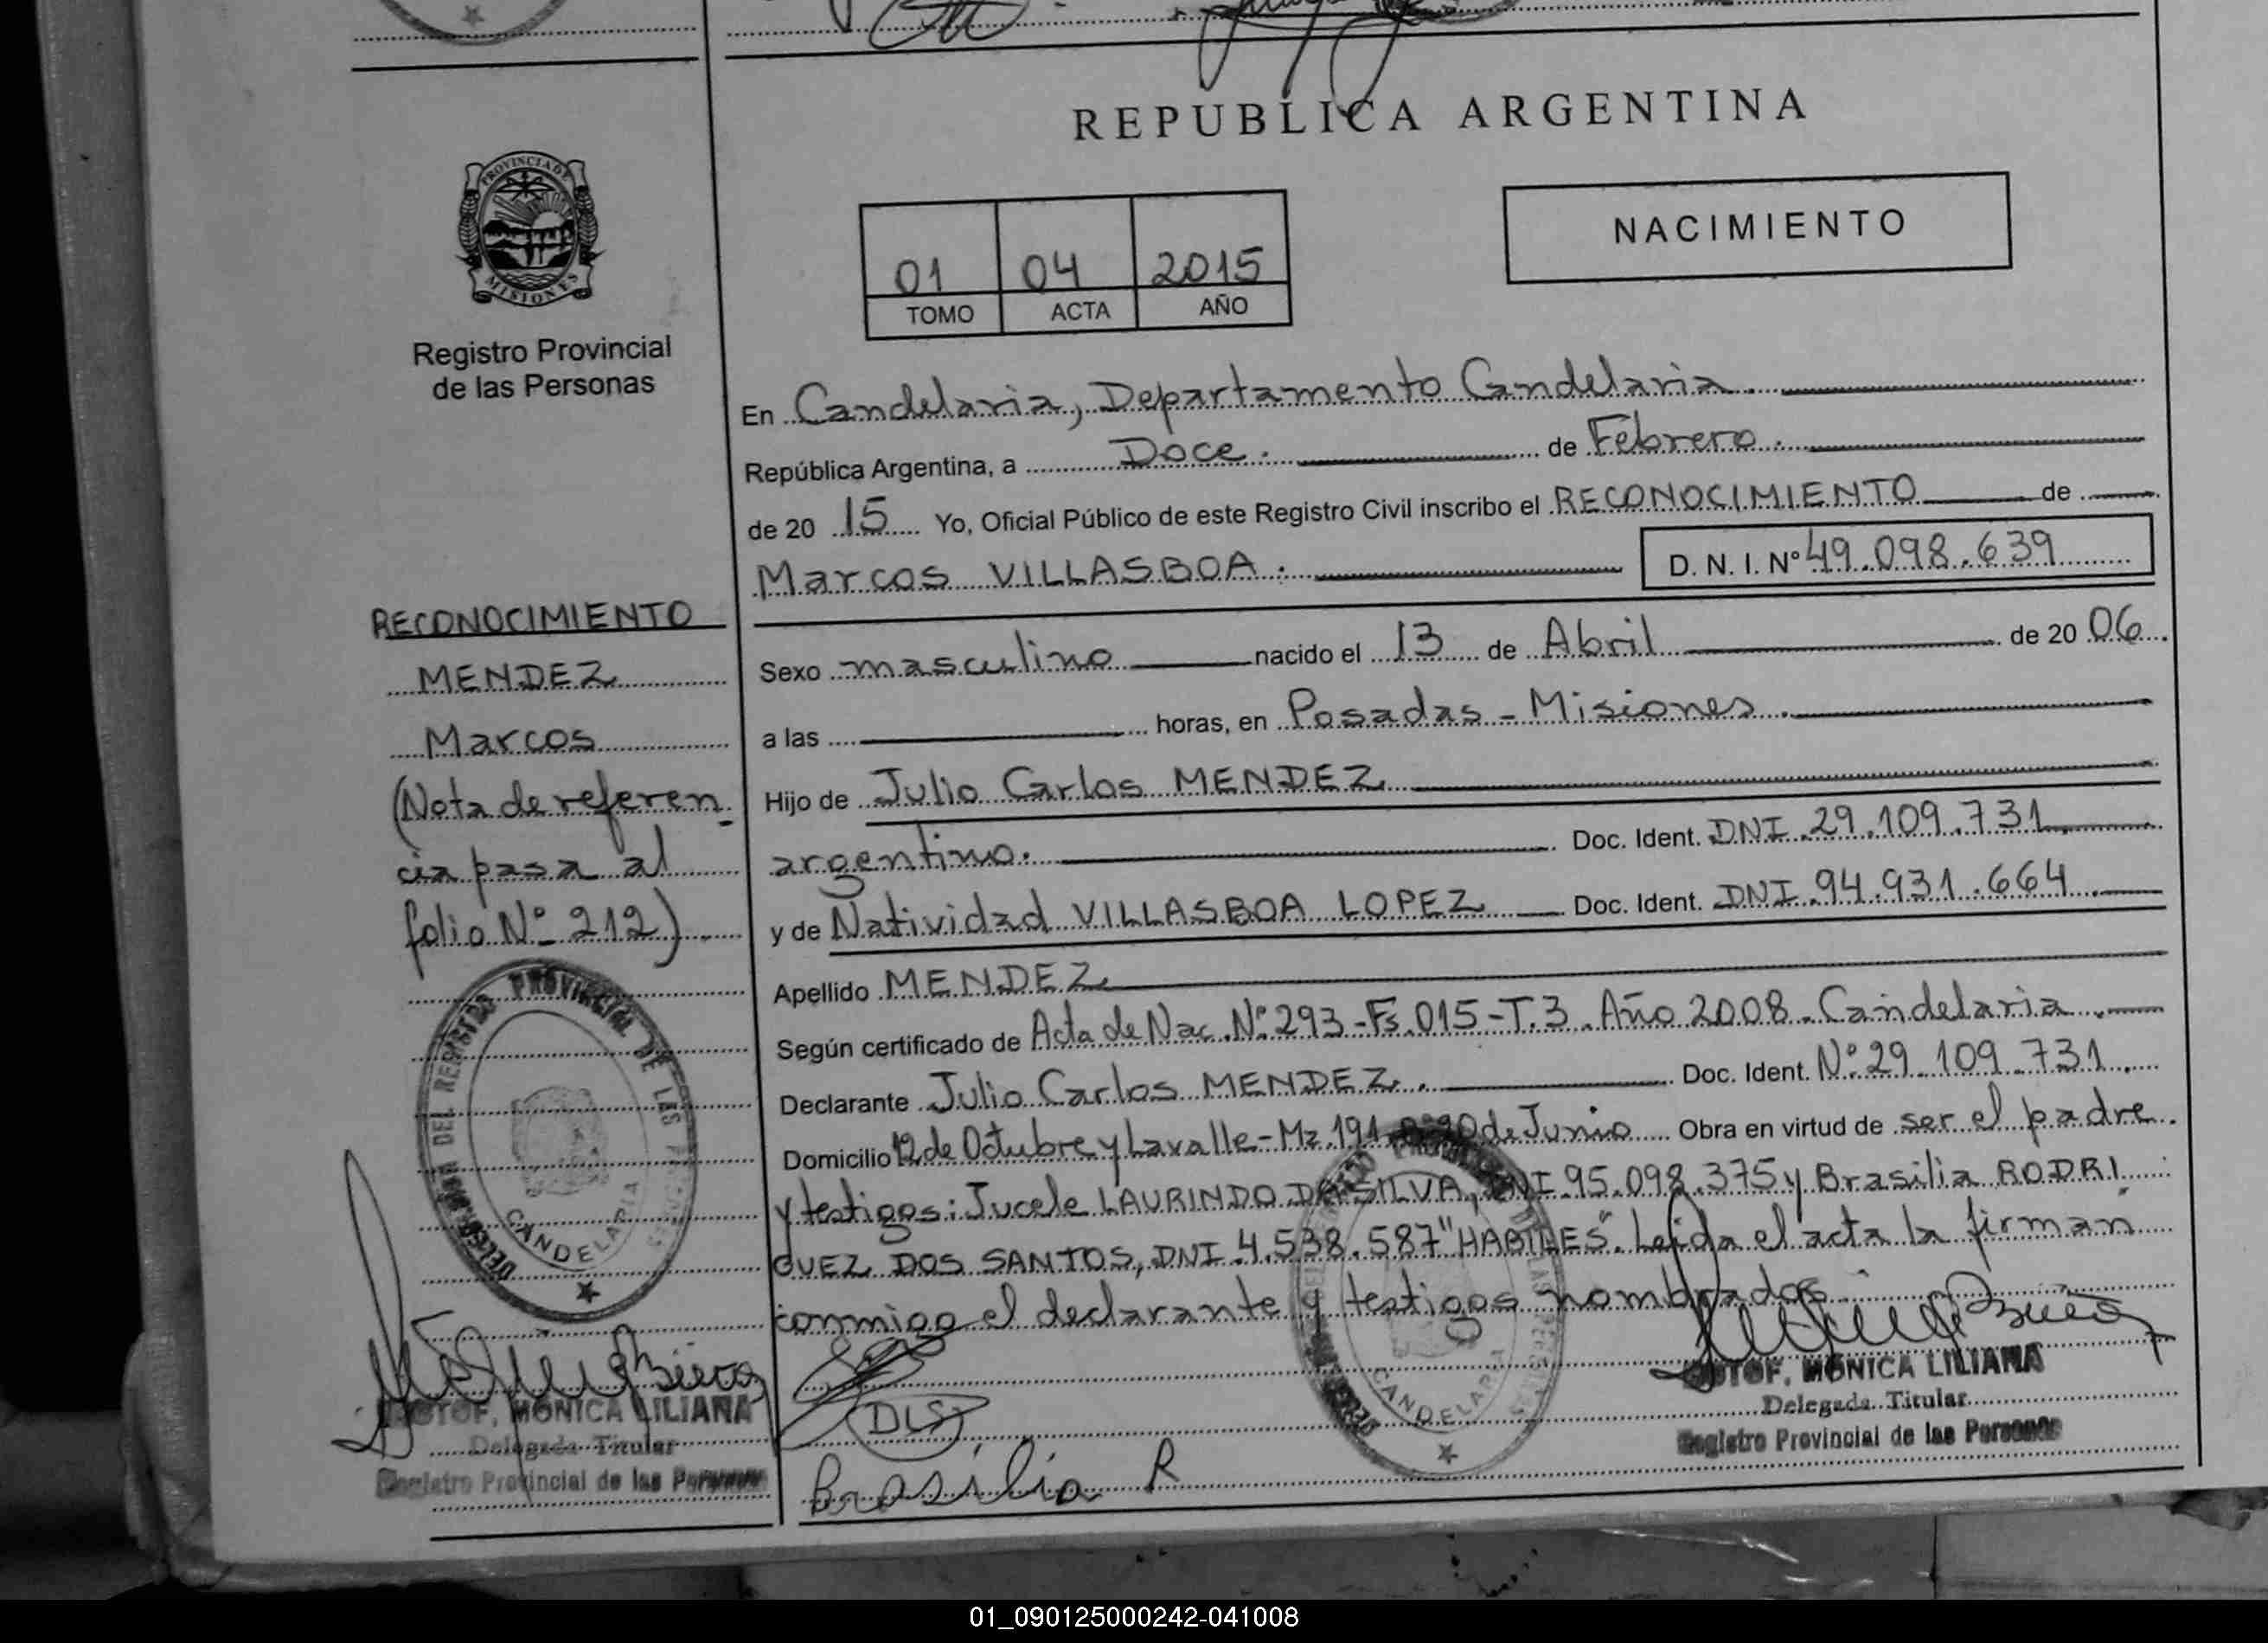 REPUBLICA ARGENTINA
PROVINCIA DE
MISIONES
Registro Provincial
de las Personas
NACIMIENTO
01 04 2015
TOMO ACTA AÑO
En Candelaria, Departamento Candelaria.
República Argentina, a Doce. de Febrero.
de 20 15 Yo, Oficial Público de este Registro Civil inscribo el RECONOCIMIENTO de
Marcos VILLASBOA. D. N. I. Nº 49.098.639
Sexo masculino nacido el 13 de Abril de 20 06.
a las horas, en Posadas - Misiones.
Hijo de Julio Carlos MENDEZ
argentino. Doc. Ident. DNI 29.109.731
y de Natividad VILLASBOA LOPEZ Doc. Ident. DNI 94.931.664
Apellido MENDEZ
Según certificado de Acta de Nac. Nº 293-Fs.015-T.3. Año 2008. Candelaria.
Declarante Julio Carlos MENDEZ. Doc. Ident. Nº 29.109.731
Domicilio 12 de Octubre y Lavalle-Mz.191 de Junio Obra en virtud de ser el padre
y testigos: Jucele LAURINDO DA SILVA, DNI 95.098.375 y Brasilia RODRI
GUEZ DOS SANTOS, DNI 4.538.587 "HABILES". Leida el acta la firman
conmigo el declarante y testigos nombrados.
RECONOCIMIENTO
MENDEZ
Marcos
(Nota de referen
cia pasa al
folio Nº 212).
PROVINCIAL DE LAS
DEL REGISTRO
CANDELARIA
MONICA LILIANA
Delegada Titular
Registro Provincial de las Personas
DLS
Brasilia R
CANDELARIA
MONICA LILIANA
Delegada Titular
Registro Provincial de las Personas
01_090125000242-041008